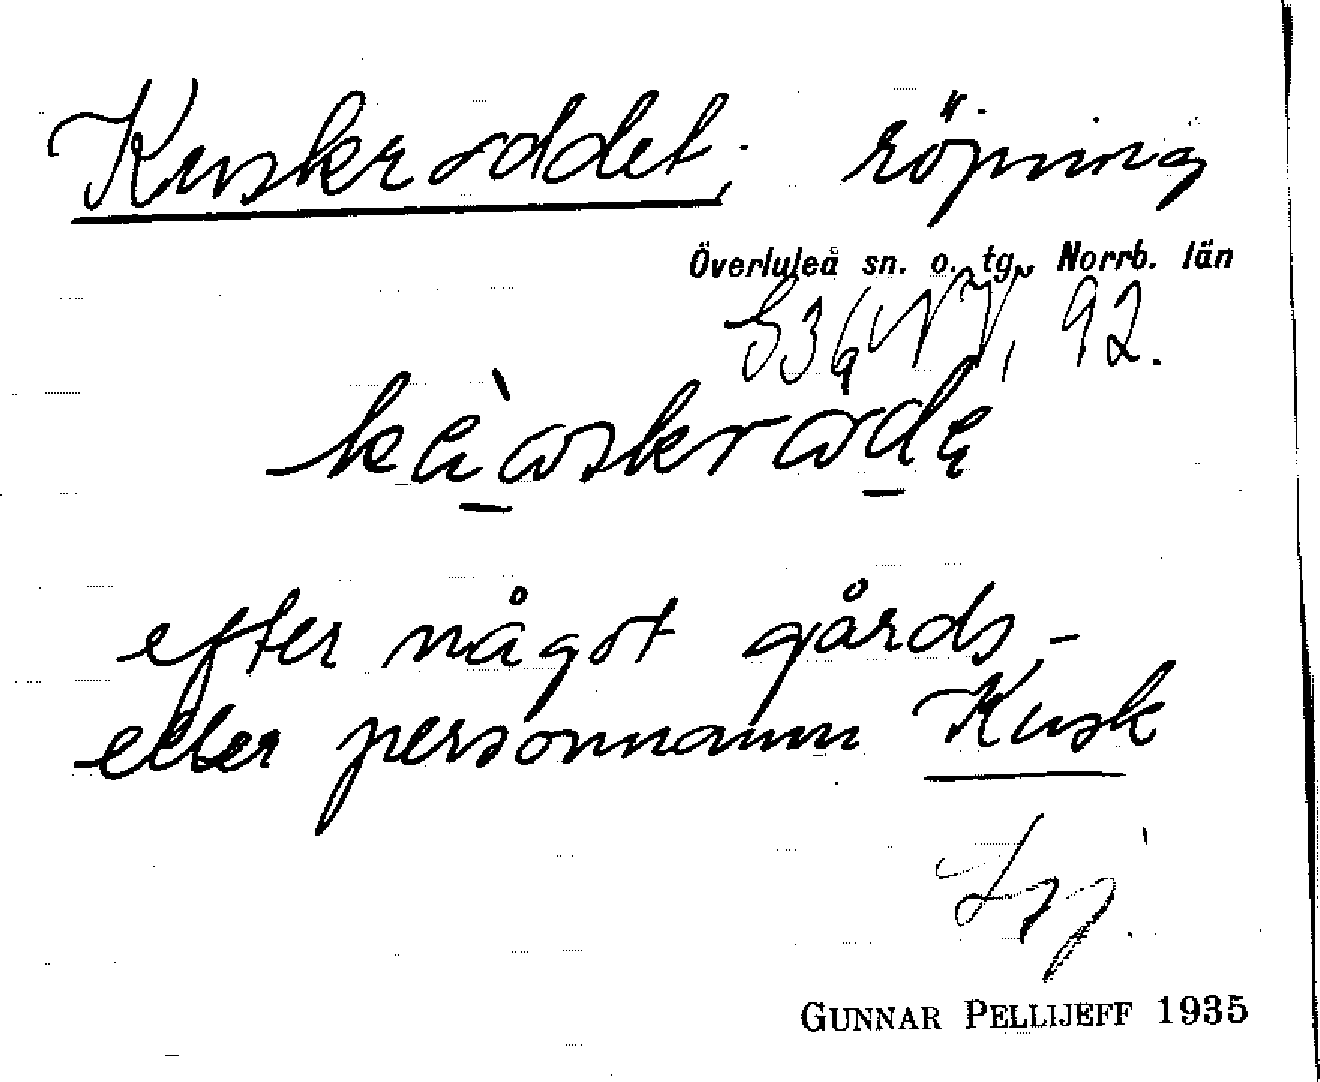 Kuskroddet, röjning
Överluleå sn. o. tg., Norrb. län
92.
efter något gårds-
eller personnamn Kusk
GUNNAR PELLIJEFF 1935